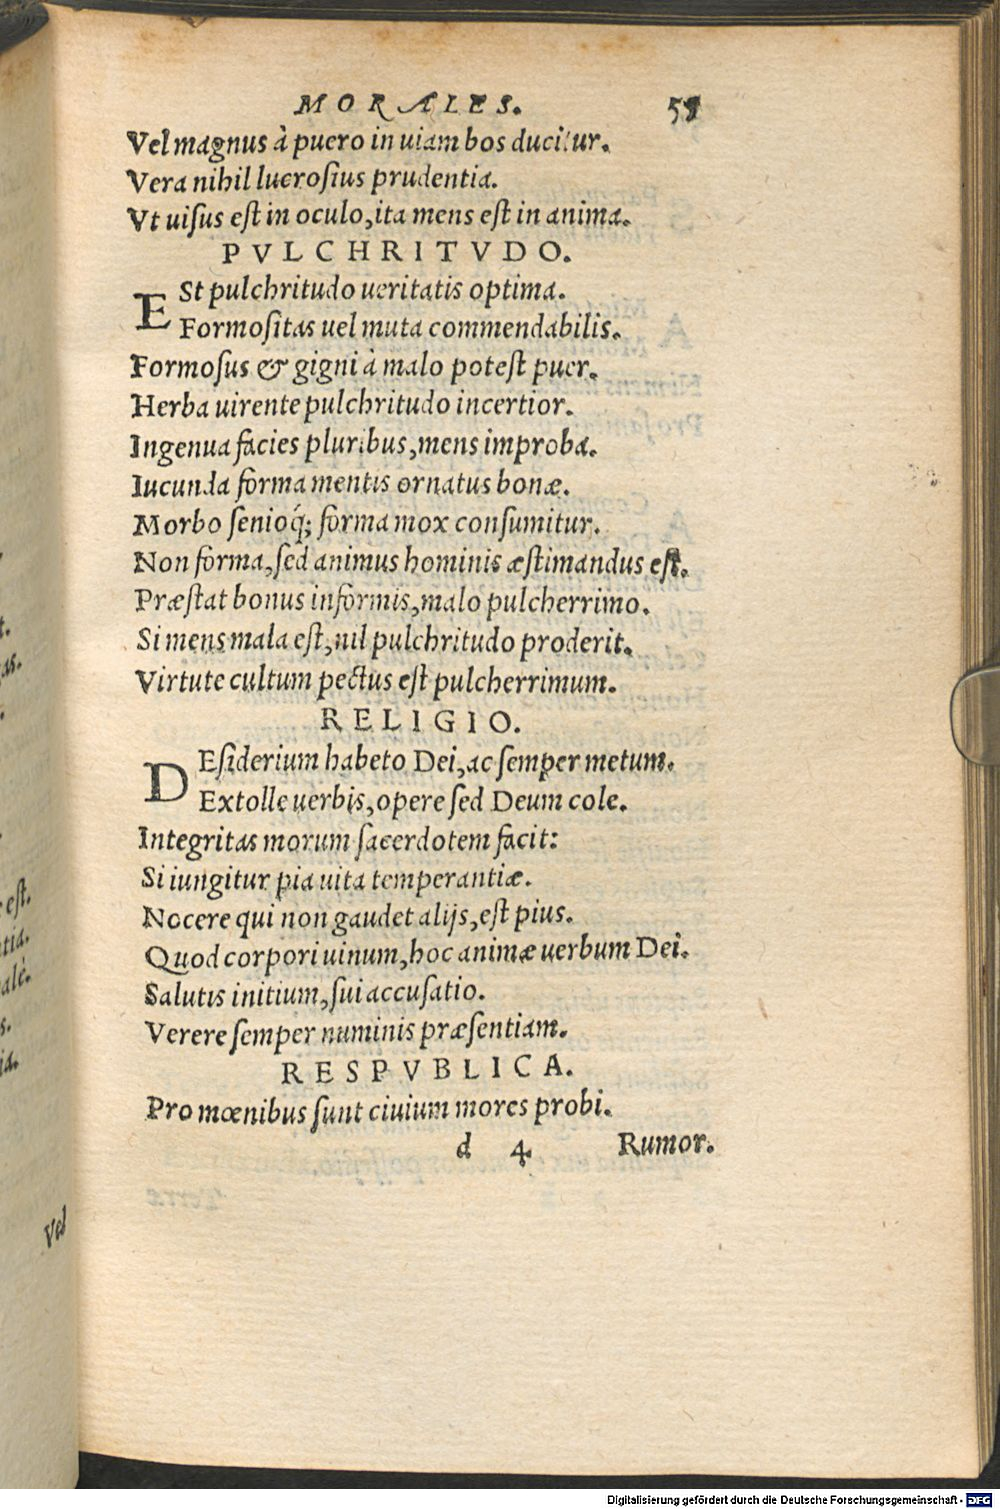 MORALES. 55
Vel magnus à puero in uiam bos ducitur.
Vera nihil lucrosius prudentia.
Vt uisus est in oculo, ita mens est in anima.
PVLCHRITVDO.
ESt pulchritudo ueritatis optima.
Formositas uel muta commendabilis.
Formosus & gigni à malo potest puer.
Herba uirente pulchritudo incertior.
Ingenua facies pluribus, mens improba.
Iucunda forma mentis ornatus bonæ.
Morbo senioq́; forma mox consumitur.
Non forma, sed animus hominis æstimandus est.
Præstat bonus informis, malo pulcherrimo.
Si mens mala est, nil pulchritudo proderit.
Virtute cultum pectus est pulcherrimum.
RELIGIO.
DEsiderium habeto Dei, ac semper metum.
Extolle uerbis, opere sed Deum cole.
Integritas morum sacerdotem facit:
Si iungitur pia uita temperantiæ.
Nocere qui non gaudet alijs, est pius.
Quod corpori uinum, hoc animæ uerbum Dei.
Salutis initium, sui accusatio.
Verere semper numinis præsentiam.
RESPVBLICA.
Pro mœnibus sunt ciuium mores probi.
d 4 Rumor.
Vel
Digitalisierung gefördert durch die Deutsche Forschungsgemeinschaft - DFG